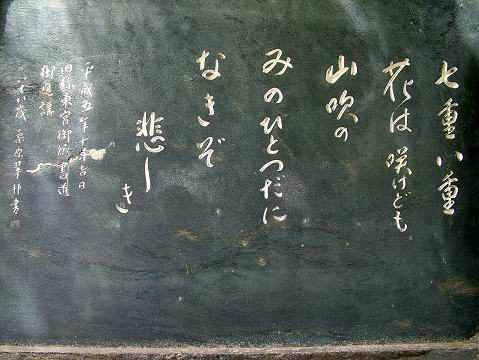 七重八重
花は咲けども
山吹の
みのひとつだに
なきぞ
悲しき
平成五年 吉日
東宮御 書道
御進講
桑原翠邦書